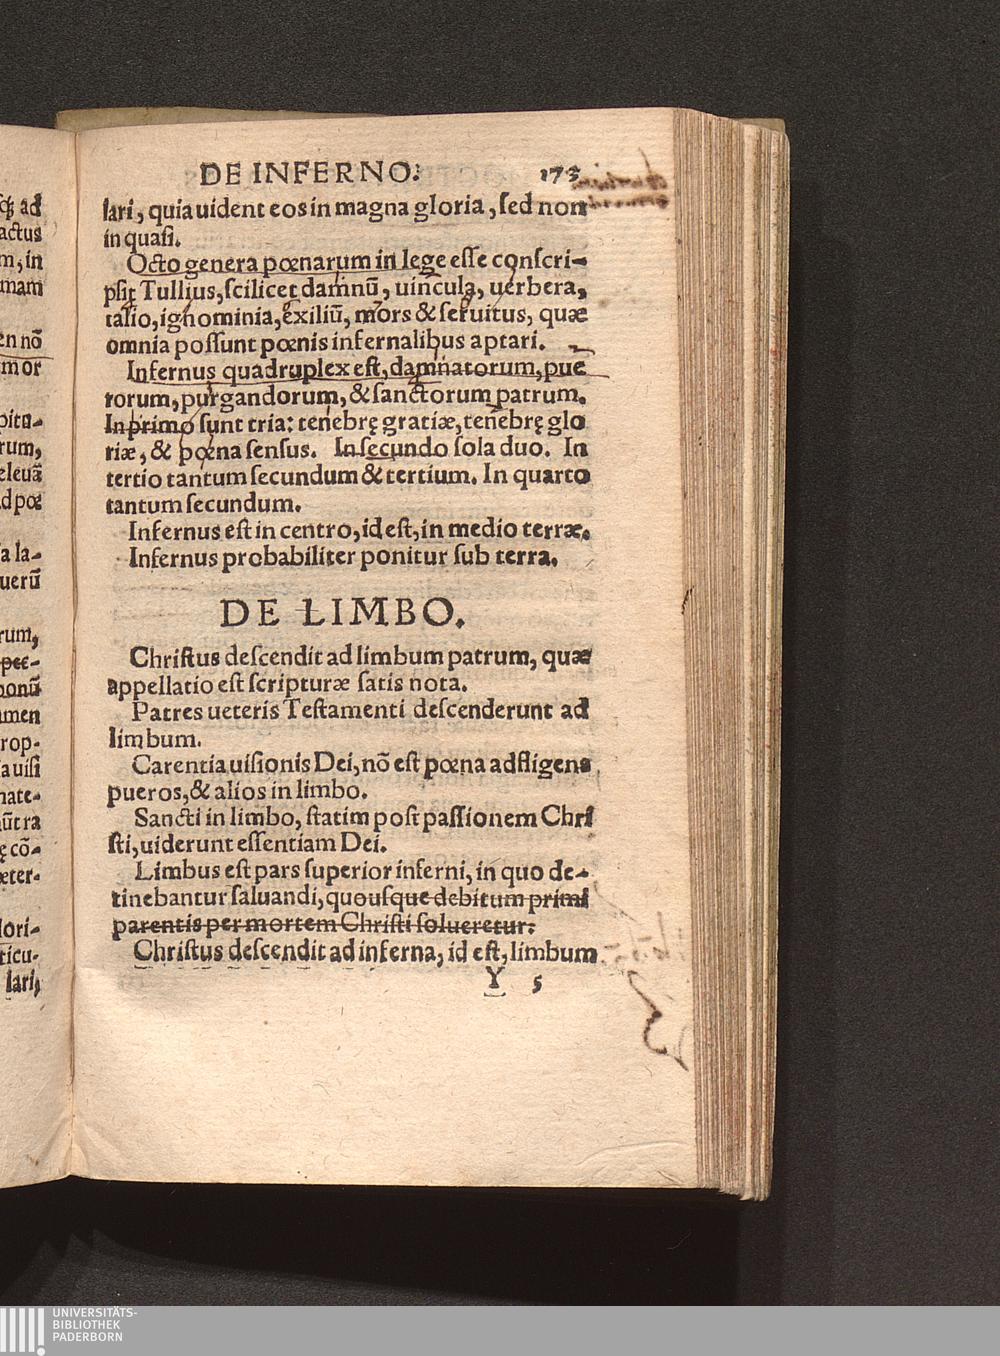 DE INFERNO. 173
lari, quia uident eos in magna gloria, sed non
in quasi.
Octo genera pœnarum in lege esse conscri-
psit Tullius, scilicet damnũ, uincula, uerbera,
talio, ignominia, exiliũ, mors & seruitus, quæ
omnia possunt pœnis infernalibus aptari.
Infernus quadruplex est, damnatorum, pue
rorum, purgandorum, & sanctorum patrum.
In primo sunt tria: tenebrę gratiæ, tenebrę glo
riæ, & pœna sensus. In secundo sola duo. In
tertio tantum secundum & tertium. In quarto
tantum secundum.
Infernus est in centro, id est, in medio terræ.
Infernus probabiliter ponitur sub terra.
DE LIMBO.
Christus descendit ad limbum patrum, quæ
appellatio est scripturæ satis nota.
Patres ueteris Testamenti descenderunt ad
limbum.
Carentia uisionis Dei, nõ est pœna adfligens
pueros, & alios in limbo.
Sancti in limbo, statim post passionem Chri
sti, uiderunt essentiam Dei.
Limbus est pars superior inferni, in quo de-
tinebantur saluandi, quousque debitum primi
parentis per mortem Christi solueretur.
Christus descendit ad inferna, id est, limbum
Y 5
ad
actus
m, in
mam
en nõ
mor
rum,
eleuã
ad pœ
a la-
uerũ
rum,
rop-
lari,
UNIVERSITÄTS-
BIBLIOTHEK
PADERBORN